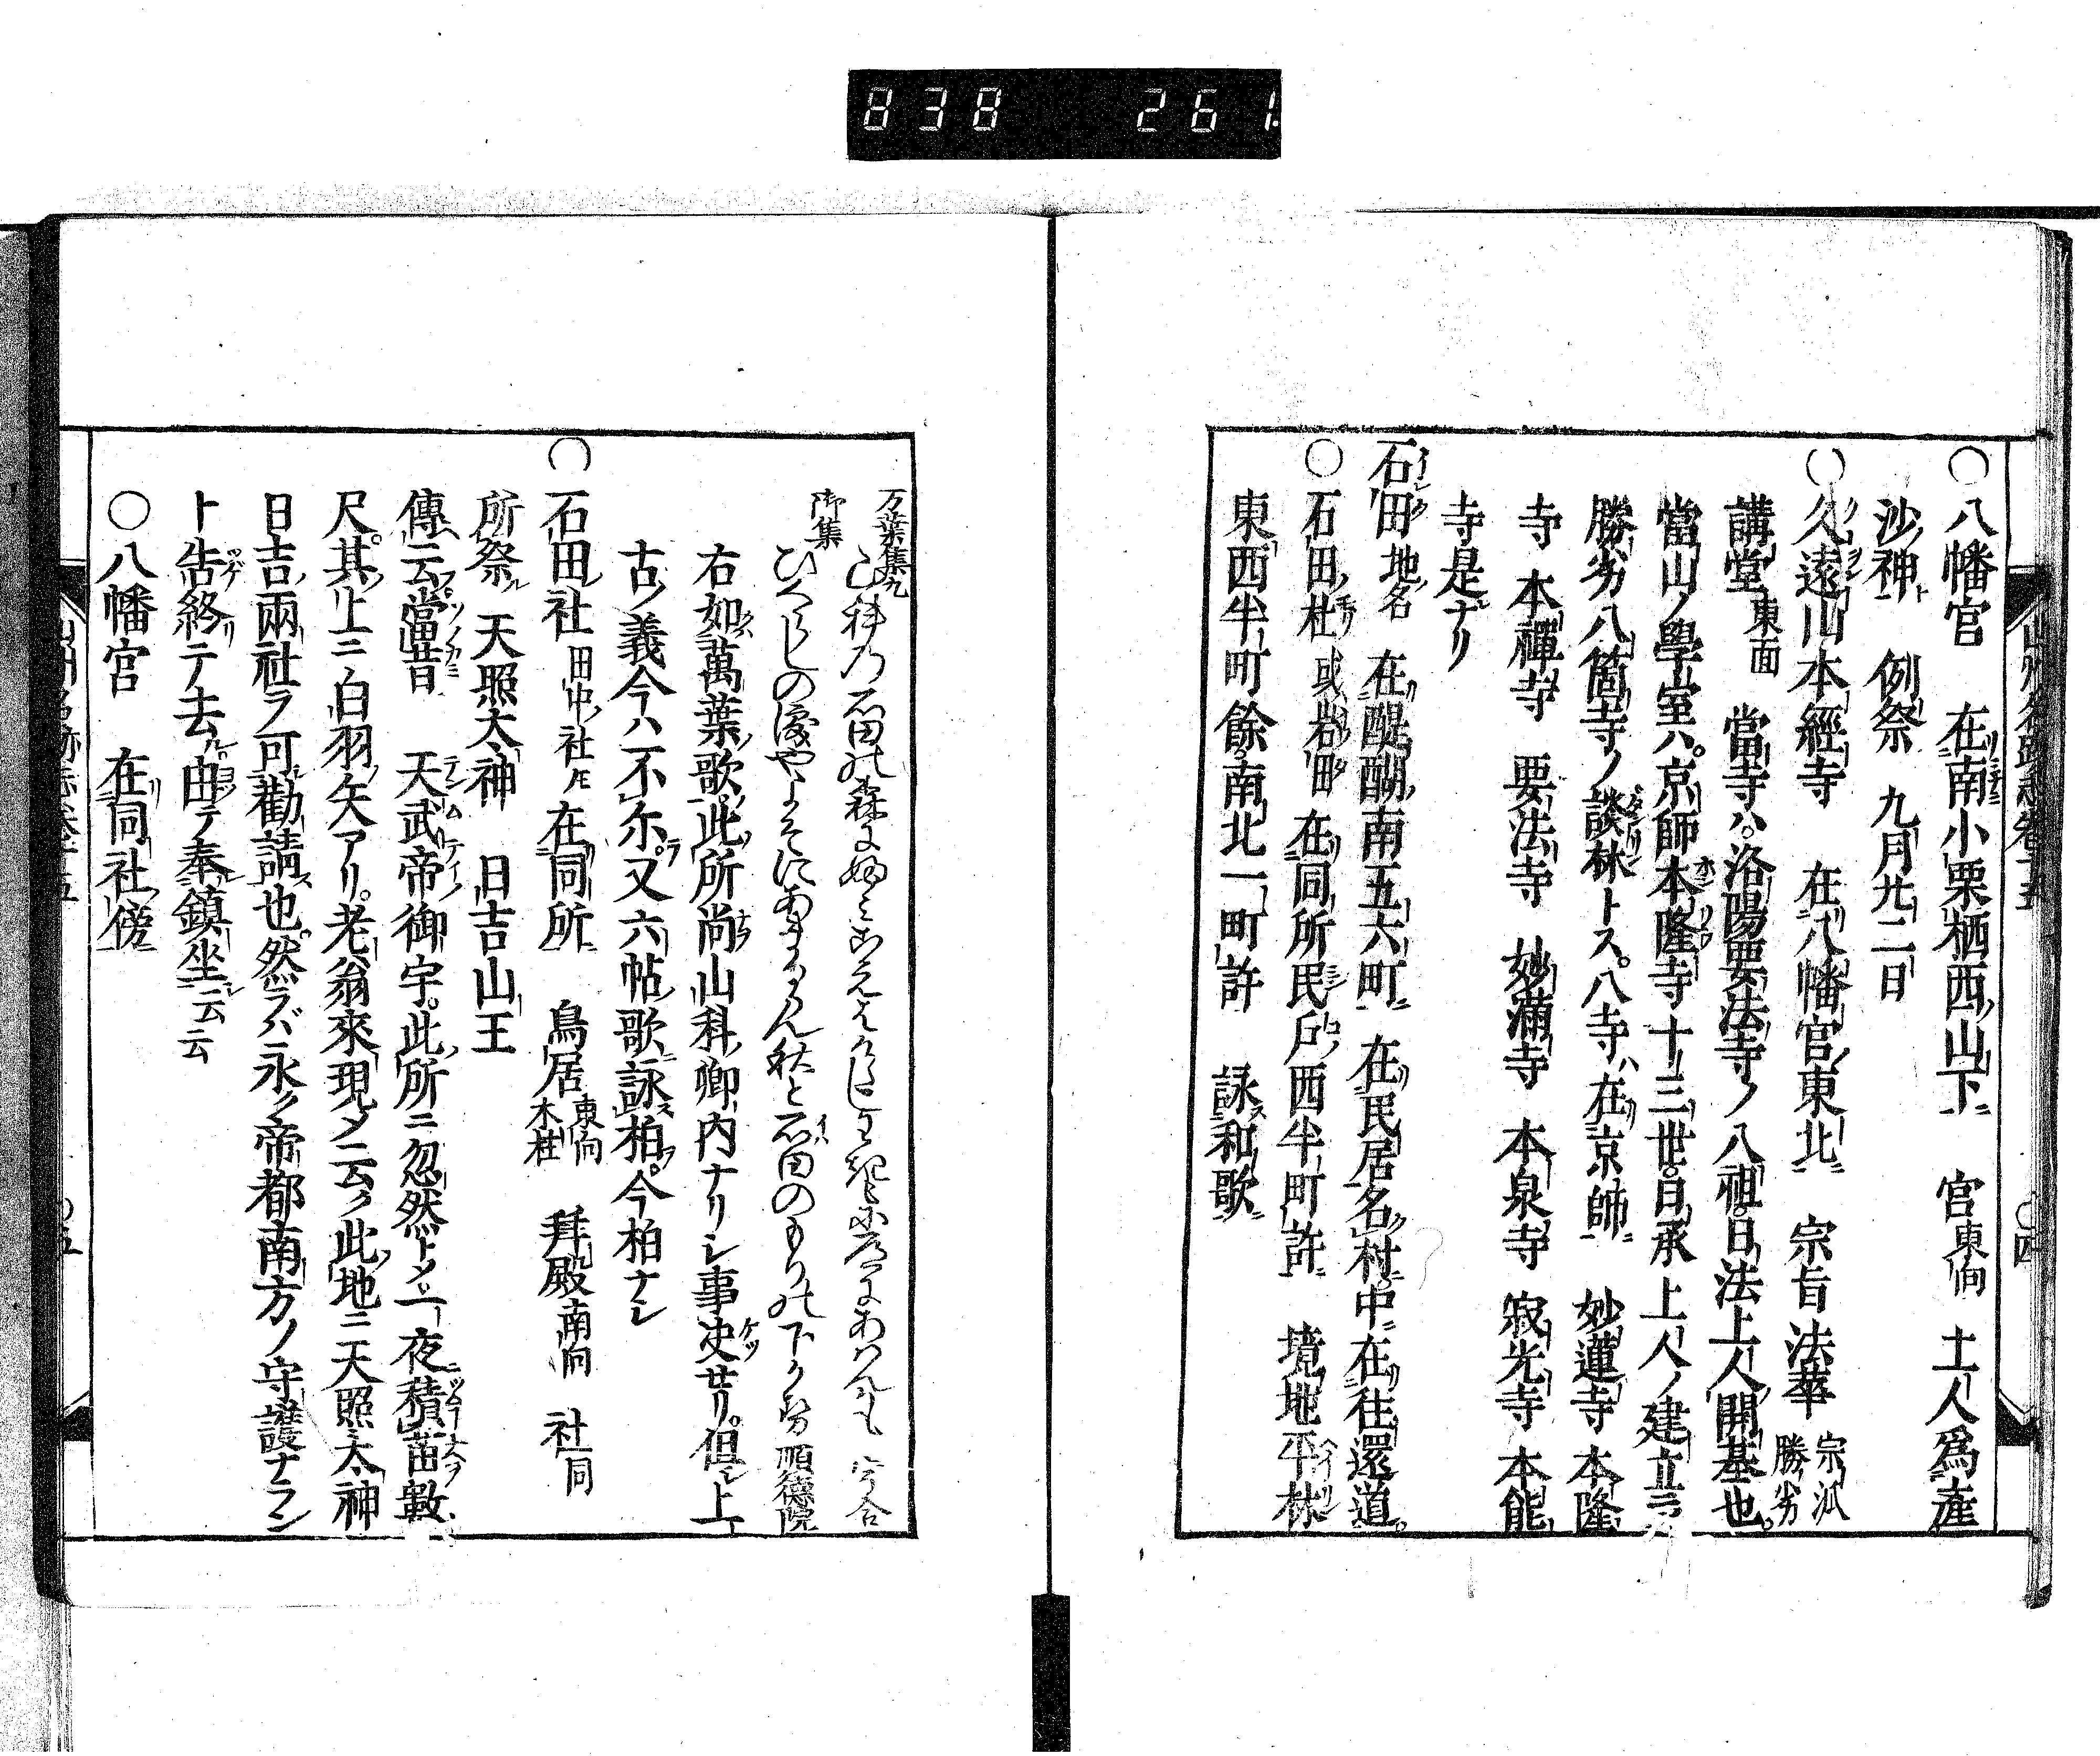 838 261
〇八幡宮 在南小栗栖西山下 宮東向 土人為産
沙神 例祭 九月廿二日
〇久遠山本經寺 在八幡宮東北 宗旨法華 宗派勝劣
講堂東面 當寺ハ。洛陽要法寺ノ八祖。日法上人開基也。
當山ノ學室ハ。京師本隆寺十三世。日承上人ノ建立
勝劣八箇寺ノ談林トス。八寺ハ在京師 妙蓮寺 本隆
寺 本禪寺 要法寺 妙滿寺 本泉寺 寂光寺 本能
寺是ナリ
石田地名 在醍醐南五六町 在民居名村。中在往還道。
〇石田杜或岩田 在同所民戸西半町許 境地平林
東西半町餘。南北一町許 詠和歌
山州名跡志卷十五 〇四
万葉集九 山科乃石田の森に
御集 ひくらしの聲やよそにあまるらん秋と石田のもりの下かせ 順德院
右如萬葉歌。此所尚山科郷内ナリシ事决セリ。但シ上
古ノ義今ハ不尓。又六帖歌詠柏。今柏ナシ
〇石田社田中社トモ 在同所 鳥居東向木柱 拜殿南向 社同
所祭 天照太神 日吉山王
傳云當昔 天武帝御宇。此所ニ忽然トメ一夜積苗數
尺。其上ニ白羽矢アリ。老翁來現メ云ク此地ニ天照太神
日吉兩社ヲ可勸請也。然ラバ永ク帝都南方ノ守護ナラン
ト告終リテ去ル。由テ奉鎮坐云云
〇八幡宮 在同社傍
〇五